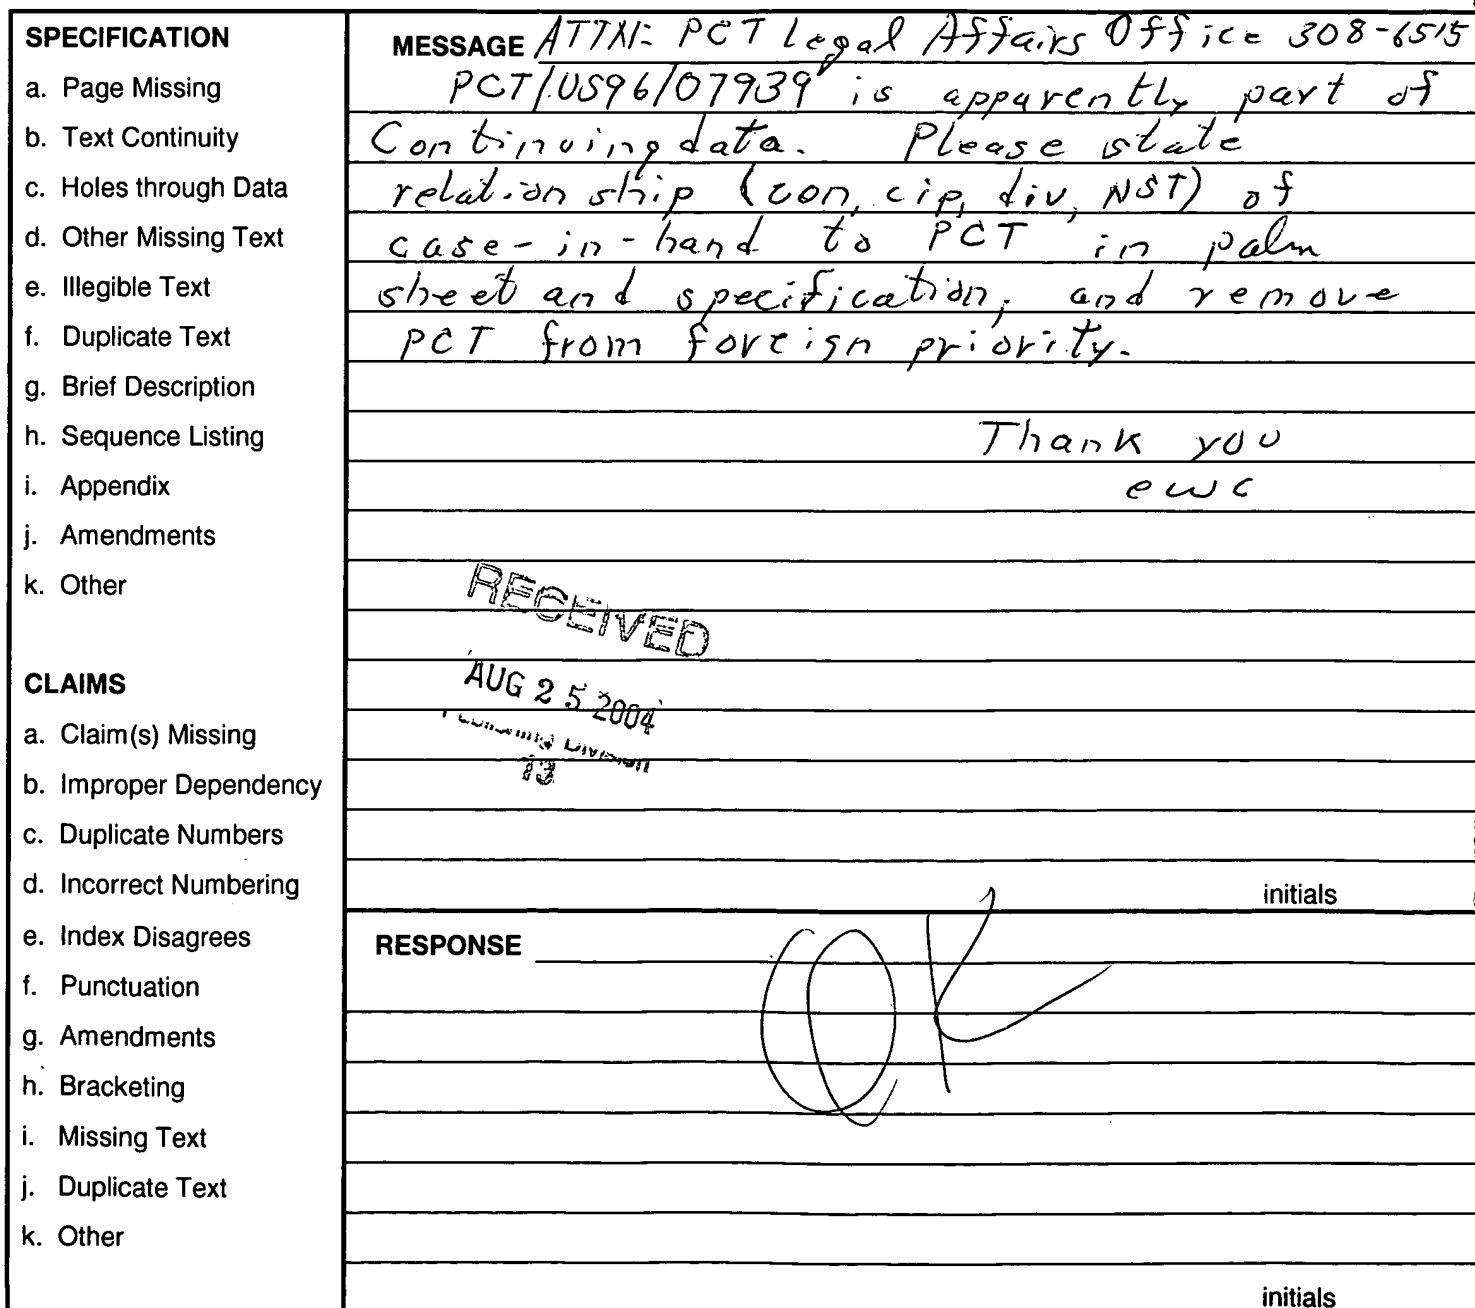 SPECIFICATION
a. Page Missing
b. Text Continuity
c. Holes through Data
d. Other Missing Text
e. Illegible Text
f. Duplicate Text
g. Brief Description
h. Sequence Listing
i. Appendix
j. Amendments
k. Other
CLAIMS
a. Claim(s) Missing
b. Improper Dependency
c. Duplicate Numbers
d. Incorrect Numbering
e. Index Disagrees
f. Punctuation
g. Amendments
h. Bracketing
i. Missing Text
j. Duplicate Text
k. Other
MESSAGE ATTN: PCT Legal Affairs Office 308-6515
PCT/US96/07939 is apparently part of
Continuing data. Please state
relationship (con, cip, div, NST) of
case-in-hand to PCT in palm
sheet and specification, and remove
PCT from foreign priority.
Thank you
ewc
RECEIVED
AUG 25 2004
Publishing Division
13
initials
RESPONSE
OK
initials